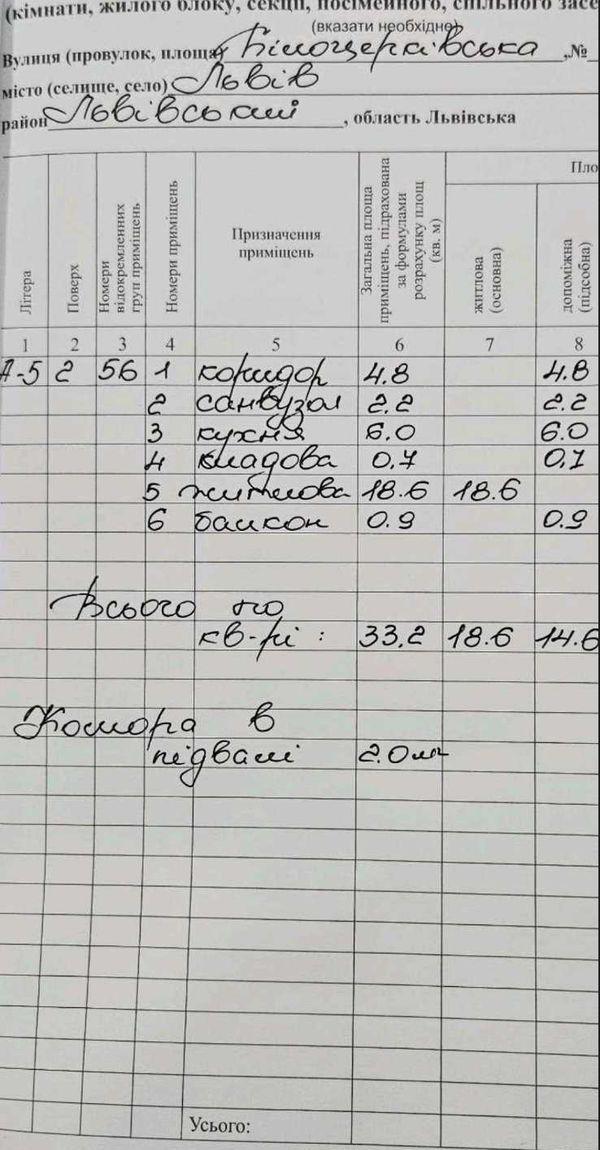 (кімнати, жилого блоку, секції, посімейного, спільного засе
(вказати необхідно)
Вулиця (провулок, площа) Білоцерківська ,№
місто (селище, село) Львів
район Львівський , область Львівська
Пло
Літера
Поверх
Номери відокремленних груп приміщень
Номери приміщень
Призначення приміщень
Загальна площа приміщень, підрахована за формулами розрахунку площ (кв. м)
житлова (основна)
допоміжна (підсобна)
1 2 3 4 5 6 7 8
А-5 2 56 1 коридор 4.8 4.8
2 санвузол 2.2 2.2
3 кухня 6.0 6.0
4 кладова 0,7 0,7
5 житлова 18.6 18.6
6 балкон 0.9 0.9
Всього по
кв-рі : 33,2 18.6 14.6
Комора в
підвалі 2.0 м²
Усього: